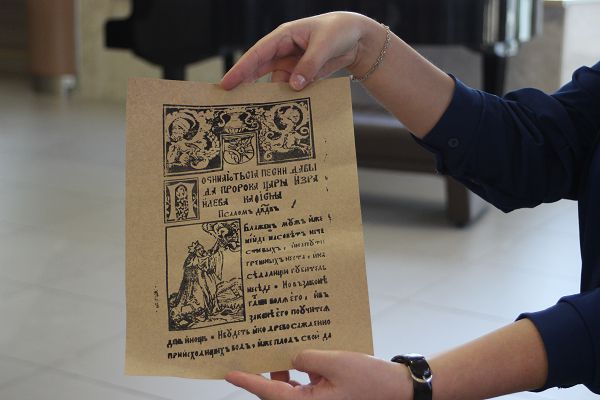 ПОЧИНАЮТЬСІА ПЕСНИ ДАВЫ
ДА ПРОРОКА ЦАРЫ ИЗРА
ИЛЕВА
Ѱалом
Блажен муж иже
не иде на совет нече
стивых, и на пути
грешных не ста, и на
седалищи губитель
не седе • Но в законе
воля его, и в
законе его поучится
ден и нощ • И будеть яко древо сажденно
при исходищих вод, иже плод свой да